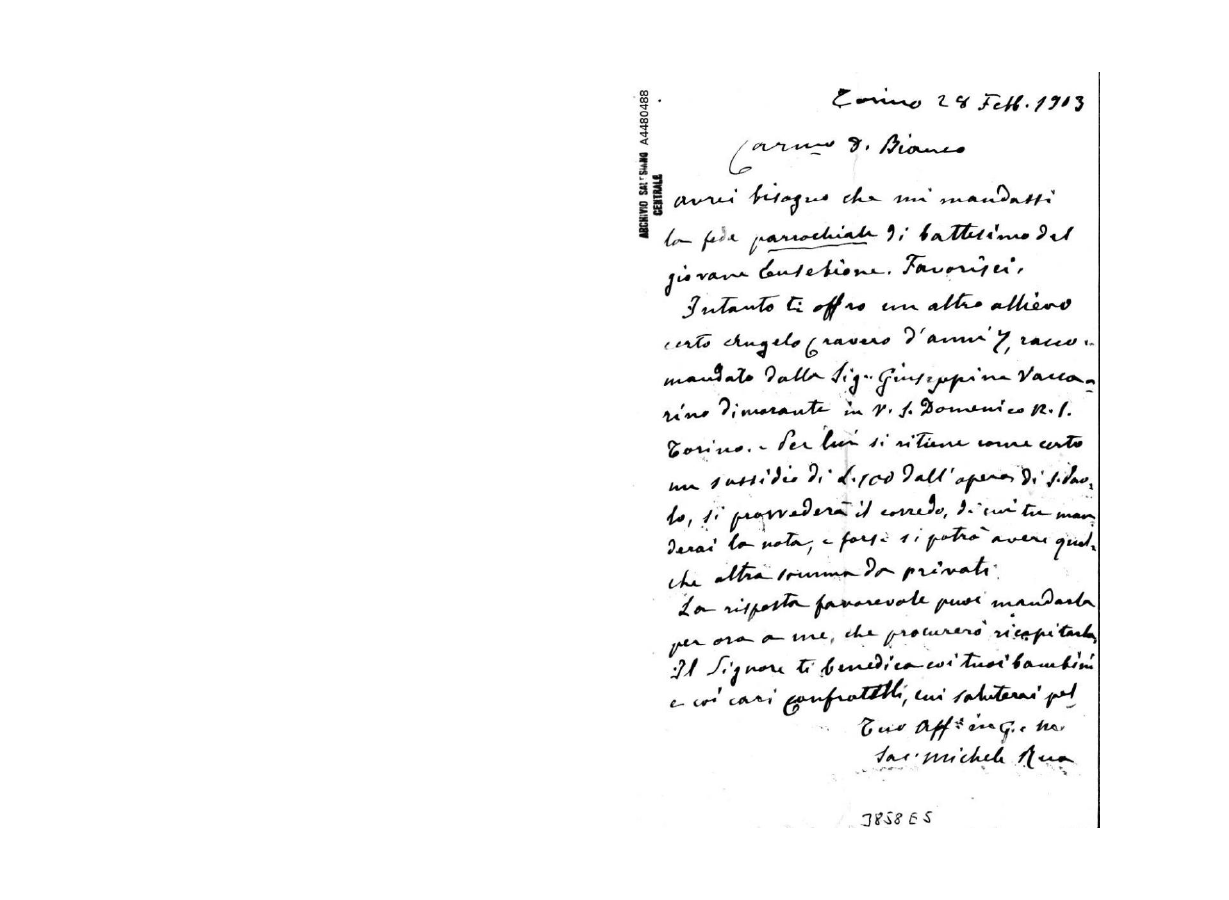 ARCHIVIO SALESIANO A4480488
CENTRALE
Torino 28 Febb. 1903
Carmo D. Bianco
avrei bisogno che mi mandassi
la fede parrochiale di battesimo del
giovane Eusebione. Favorisci.
Intanto ti offro un altro allievo
certo Angelo Cravero d'anni 7, racco-
mandato dalla Sig.ra Giuseppina Vacca-
rino dimorante in V. S. Domenico N. 1.
Torino. - Per lui si ritiene come certo
un sussidio di L. 100 dall'opera di S. Pao-
lo, si provvederà il corredo, di cui tu man
derai la nota, e forse si potrà avere qual-
che altra somma da privati.
La risposta favorevole puoi mandarla
per ora a me, che procurerò ricapitarla,
Il Signore ti benedica coi tuoi bambini
e coi cari confratelli, cui saluterai pel
Tuo Aff. in G. e M.
Sac. Michele Rua
3858 E 5